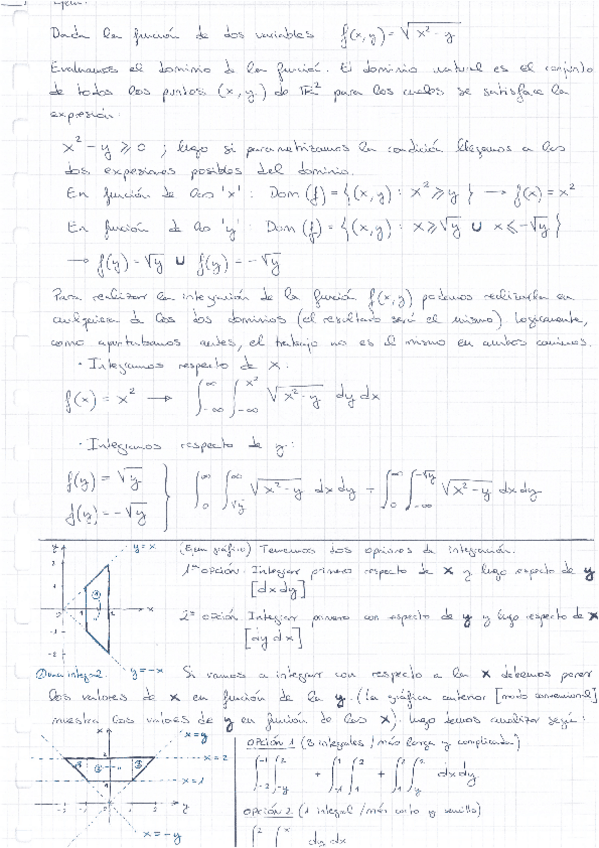 Ejem:
Dada la función de dos variables f(x,y) = √(x² - y)
Evaluamos el dominio de la función. El dominio natural es el conjunto
de todos los puntos (x,y) de ℝ² para los cuales se satisface la
expresión:
x² - y ⩾ 0 ; luego si parametrizamos la condición llegamos a las
dos expresiones posibles del dominio.
En función de las 'x': Dom(f) = {(x,y) : x² ⩾ y} → f(x) = x²
En función de las 'y': Dom(f) = {(x,y) : x ⩾ √y ∪ x ⩽ -√y}
→ f(y) = √y ∪ f(y) = -√y
Para realizar la integración de la función f(x,y) podemos realizarla en
cualquiera de los dos dominios (el resultado será el mismo). Logicamente,
como apuntabamos antes, el trabajo no es el mismo en ambos caminos.
· Integramos respecto de x.
f(x) = x² → ∫_{-∞}^{∞} ∫_{-∞}^{x²} √(x² - y) dy dx
· Integramos respecto de y:
f(y) = √y
f(y) = -√y } ∫_{0}^{∞} ∫_{√y}^{∞} √(x² - y) dx dy + ∫_{0}^{∞} ∫_{-∞}^{-√y} √(x² - y) dx dy
y=x (Ejem gráfico) Tenemos dos opciones de integración.
1ª opción. Integrar primero respecto de x y luego respecto de y
[dxdy]
2ª opción Integrar primero con respecto de y y luego respecto de x
[dy dx]
y=-x Si vamos a integrar con respecto a la x debemos poner
los valores de x en función de la y. (la gráfica anterior [modo convencional]
muestra los valores de y en función de las x). Luego
x=y
OPCIÓN 1 (3 integrales / más larga y complicada)
x=2
x=1
∫_{-2}^{-1} ∫_{-y}^{2} + ∫_{-1}^{1} ∫_{1}^{2} + ∫_{1}^{2} ∫_{y}^{2} dxdy
OPCIÓN 2 (1 integral / más corto y sencillo)
x=-y
∫^{2} ∫^{x} dy dx